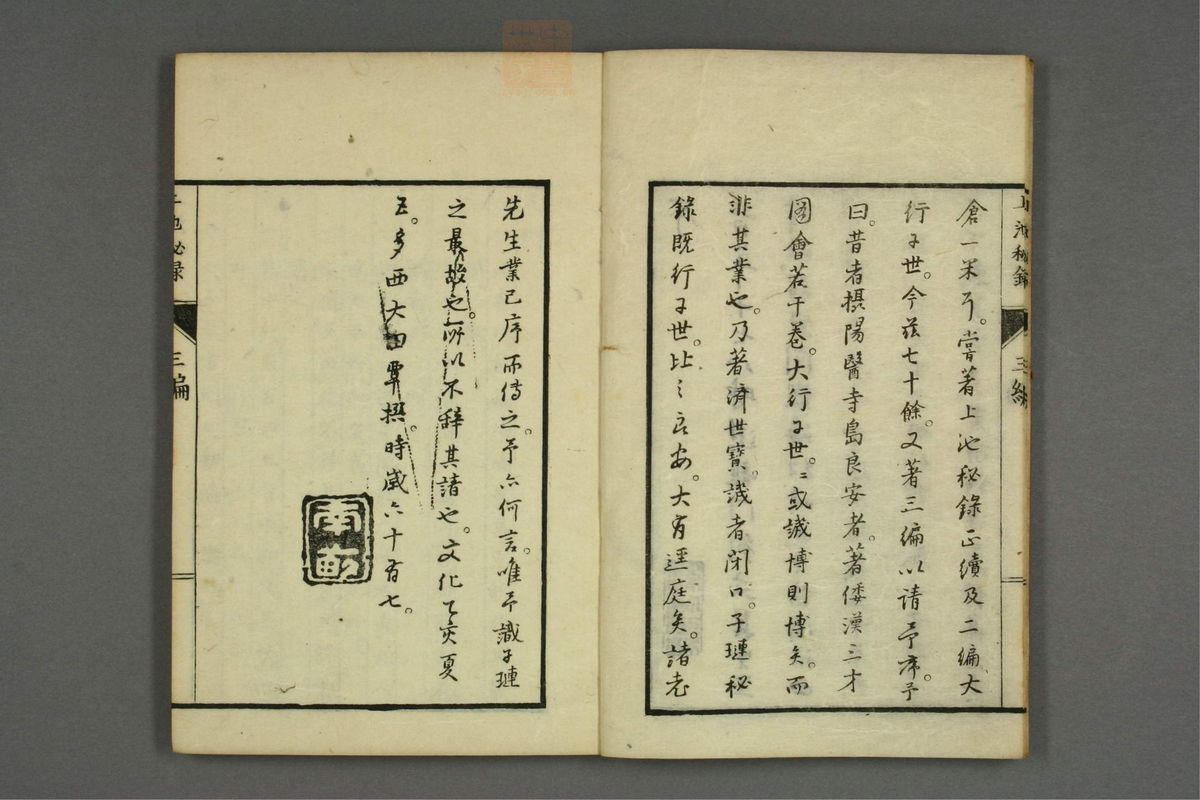 倉一米了。嘗著上池秘錄正續及二編大
行于世。今茲七十餘。又著三編以請予序。予
曰。昔者摂陽醫寺島良安者。著倭漢三才
圖會若干卷。大行于世。或譏博則博矣。而
非其業也。乃著濟世寶。譏者閉口。子璉秘
錄既行于世。比之良安。大有逕庭矣。諸老
先生業已序而傳之。予亦何言。唯予識子璉
之最故也。所以不辞其請也。文化乙亥夏
五。多西大田覃撰。時歲六十有七。
上池秘錄
三編
三編